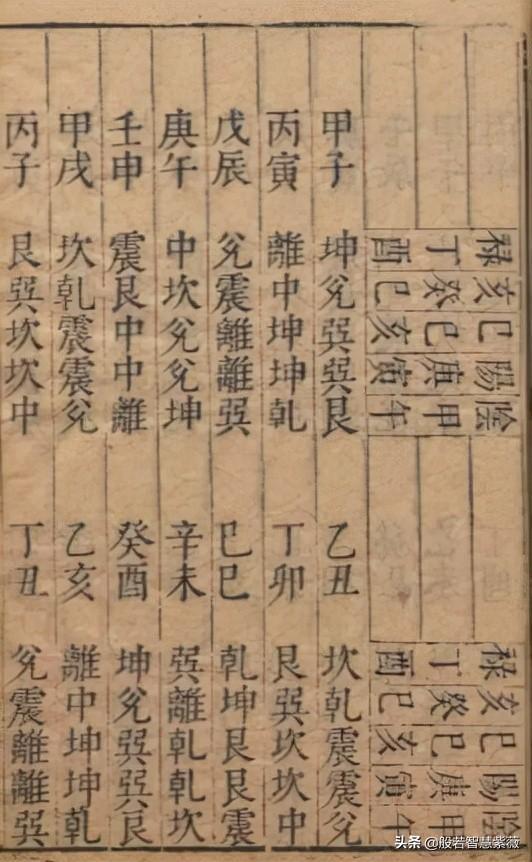 祿亥巳陽陰 祿亥巳陽陰
丁癸巳庚甲 丁癸巳庚甲
酉巳亥寅午 酉巳亥寅午
甲子 坤兊巽巽艮 乙丑 坎乾震震兊
丙寅 離中坤坤乾 丁卯 艮巽坎坎中
戊辰 兊震離離巽 己巳 乾坤艮艮震
庚午 中坎兊兊坤 辛未 巽離乾乾坎
壬申 震艮中中離 癸酉 坤兊巽巽艮
甲戌 坎乾震震兊 乙亥 離中坤坤乾
丙子 艮巽坎坎中 丁丑 兊震離離巽
头条 @般若智慧紫薇